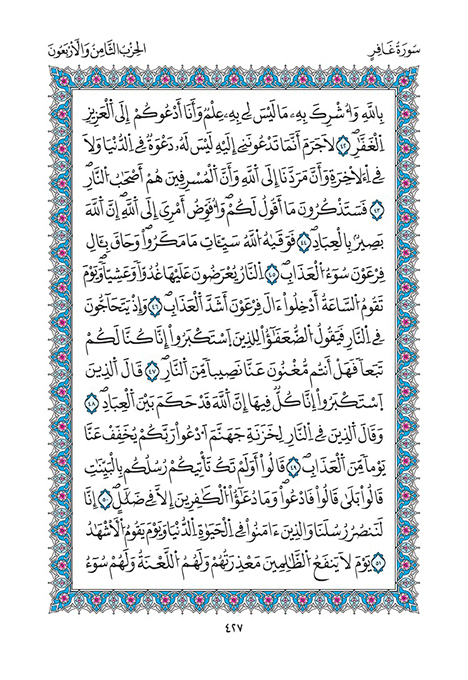 سُورَةُ غَافِرٍ
الحِزْبُ الثَّامِنُ وَالْأَرْبَعُونَ
بِاللَّهِ وَأُشْرِكَ بِهِۦ مَا لَيْسَ لِي بِهِۦ عِلْمٌ وَأَنَا أَدْعُوكُمْ إِلَى الْعَزِيزِ
الْغَفَّٰرِ ٤٢ لَا جَرَمَ أَنَّمَا تَدْعُونَنِي إِلَيْهِ لَيْسَ لَهُۥ دَعْوَةٌ فِي الدُّنْيَا وَلَا
فِي الْأَخِرَةِ وَأَنَّ مَرَدَّنَا إِلَى اللَّهِ وَأَنَّ الْمُسْرِفِينَ هُمْ أَصْحَٰبُ النَّارِ
٤٣ فَسَتَذْكُرُونَ مَا أَقُولُ لَكُمْ وَأُفَوِّضُ أَمْرِيَ إِلَى اللَّهِ إِنَّ اللَّهَ
بَصِيرٌ بِالْعِبَادِ ٤٤ فَوَقَىٰهُ اللَّهُ سَيِّـَٔاتِ مَا مَكَرُوا وَحَاقَ بِـَٔالِ
فِرْعَوْنَ سُوٓءُ الْعَذَابِ ٤٥ النَّارُ يُعْرَضُونَ عَلَيْهَا غُدُوًّا وَعَشِيًّا وَيَوْمَ
تَقُومُ السَّاعَةُ أَدْخِلُوا ءَالَ فِرْعَوْنَ أَشَدَّ الْعَذَابِ ٤٦ وَإِذْ يَتَحَاجُّونَ
فِي النَّارِ فَيَقُولُ الضُّعَفَٰٓؤُا لِلَّذِينَ اسْتَكْبَرُوا إِنَّا كُنَّا لَكُمْ
تَبَعًا فَهَلْ أَنتُم مُّغْنُونَ عَنَّا نَصِيبًا مِّنَ النَّارِ ٤٧ قَالَ الَّذِينَ
اسْتَكْبَرُوا إِنَّا كُلٌّ فِيهَا إِنَّ اللَّهَ قَدْ حَكَمَ بَيْنَ الْعِبَادِ ٤٨
وَقَالَ الَّذِينَ فِي النَّارِ لِخَزَنَةِ جَهَنَّمَ ادْعُوا رَبَّكُمْ يُخَفِّفْ عَنَّا
يَوْمًا مِّنَ الْعَذَابِ ٤٩ قَالُوا أَوَلَمْ تَكُ تَأْتِيكُمْ رُسُلُكُم بِالْبَيِّنَٰتِ
قَالُوا بَلَىٰ قَالُوا فَادْعُوا وَمَا دُعَٰٓؤُا الْكَٰفِرِينَ إِلَّا فِي ضَلَٰلٍ ٥٠ إِنَّا
لَنَنصُرُ رُسُلَنَا وَالَّذِينَ ءَامَنُوا فِي الْحَيَوٰةِ الدُّنْيَا وَيَوْمَ يَقُومُ الْأَشْهَٰدُ
٥١ يَوْمَ لَا تَنفَعُ الظَّٰلِمِينَ مَعْذِرَتُهُمْ وَلَهُمُ اللَّعْنَةُ وَلَهُمْ سُوٓءُ
٤٢٧